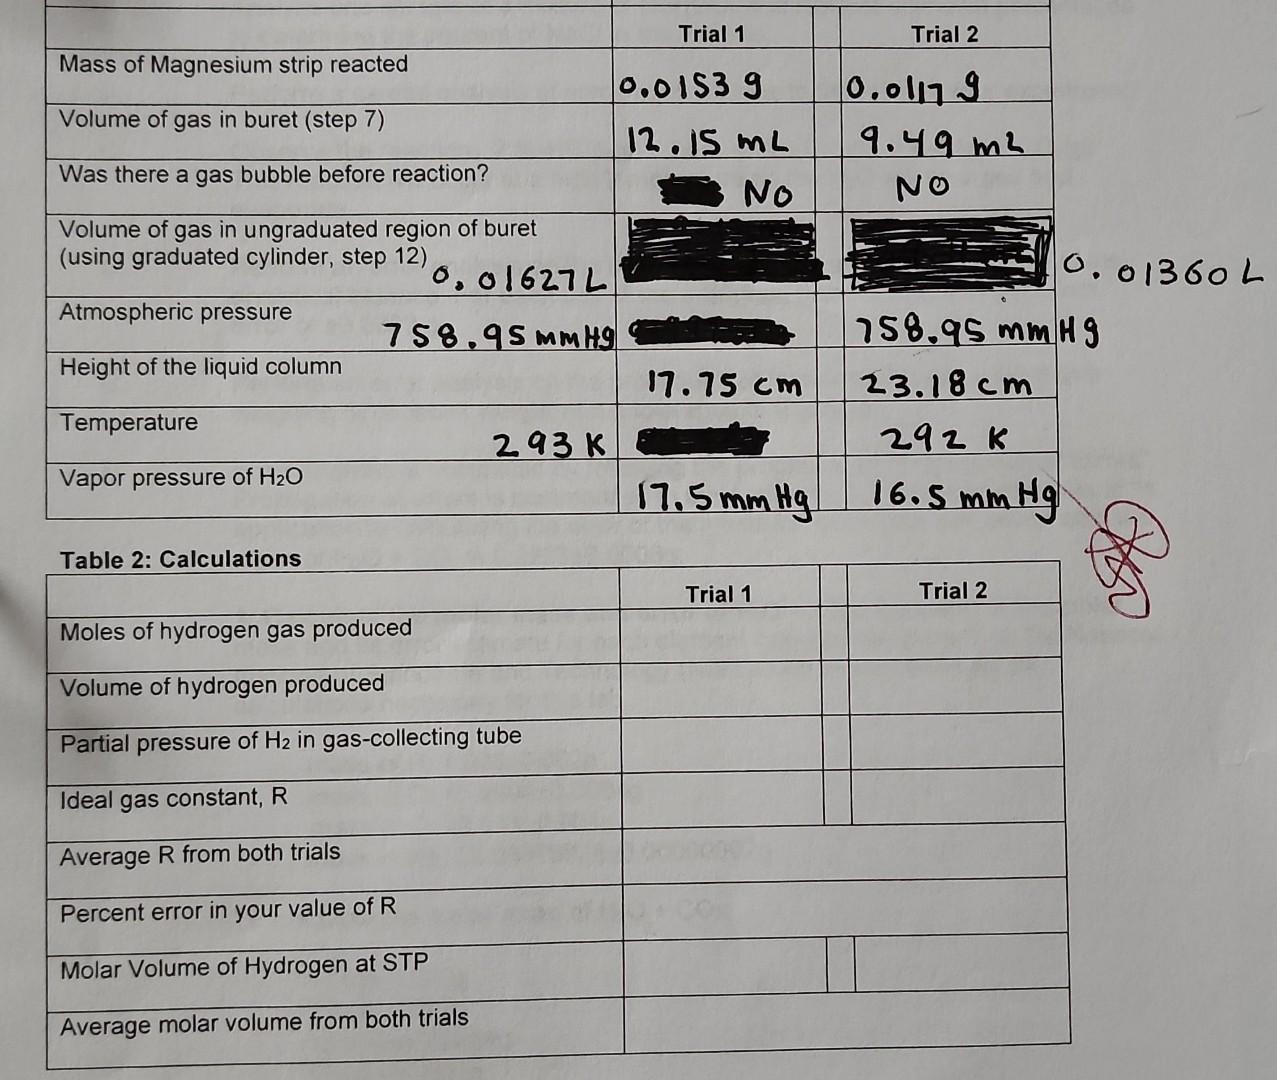 Trial 1 Trial 2
Mass of Magnesium strip reacted 0.0153 g 0.0117 g
Volume of gas in buret (step 7) 12.15 mL 9.49 mL
Was there a gas bubble before reaction? NO NO
Volume of gas in ungraduated region of buret
(using graduated cylinder, step 12) 0.01627 L 0.01360 L
Atmospheric pressure 758.95 mmHg 758.95 mmHg
Height of the liquid column 17.75 cm 23.18 cm
Temperature 293 K 292 K
Vapor pressure of H2O 17.5 mmHg 16.5 mmHg
Table 2: Calculations
Trial 1 Trial 2
Moles of hydrogen gas produced
Volume of hydrogen produced
Partial pressure of H2 in gas-collecting tube
Ideal gas constant, R
Average R from both trials
Percent error in your value of R
Molar Volume of Hydrogen at STP
Average molar volume from both trials